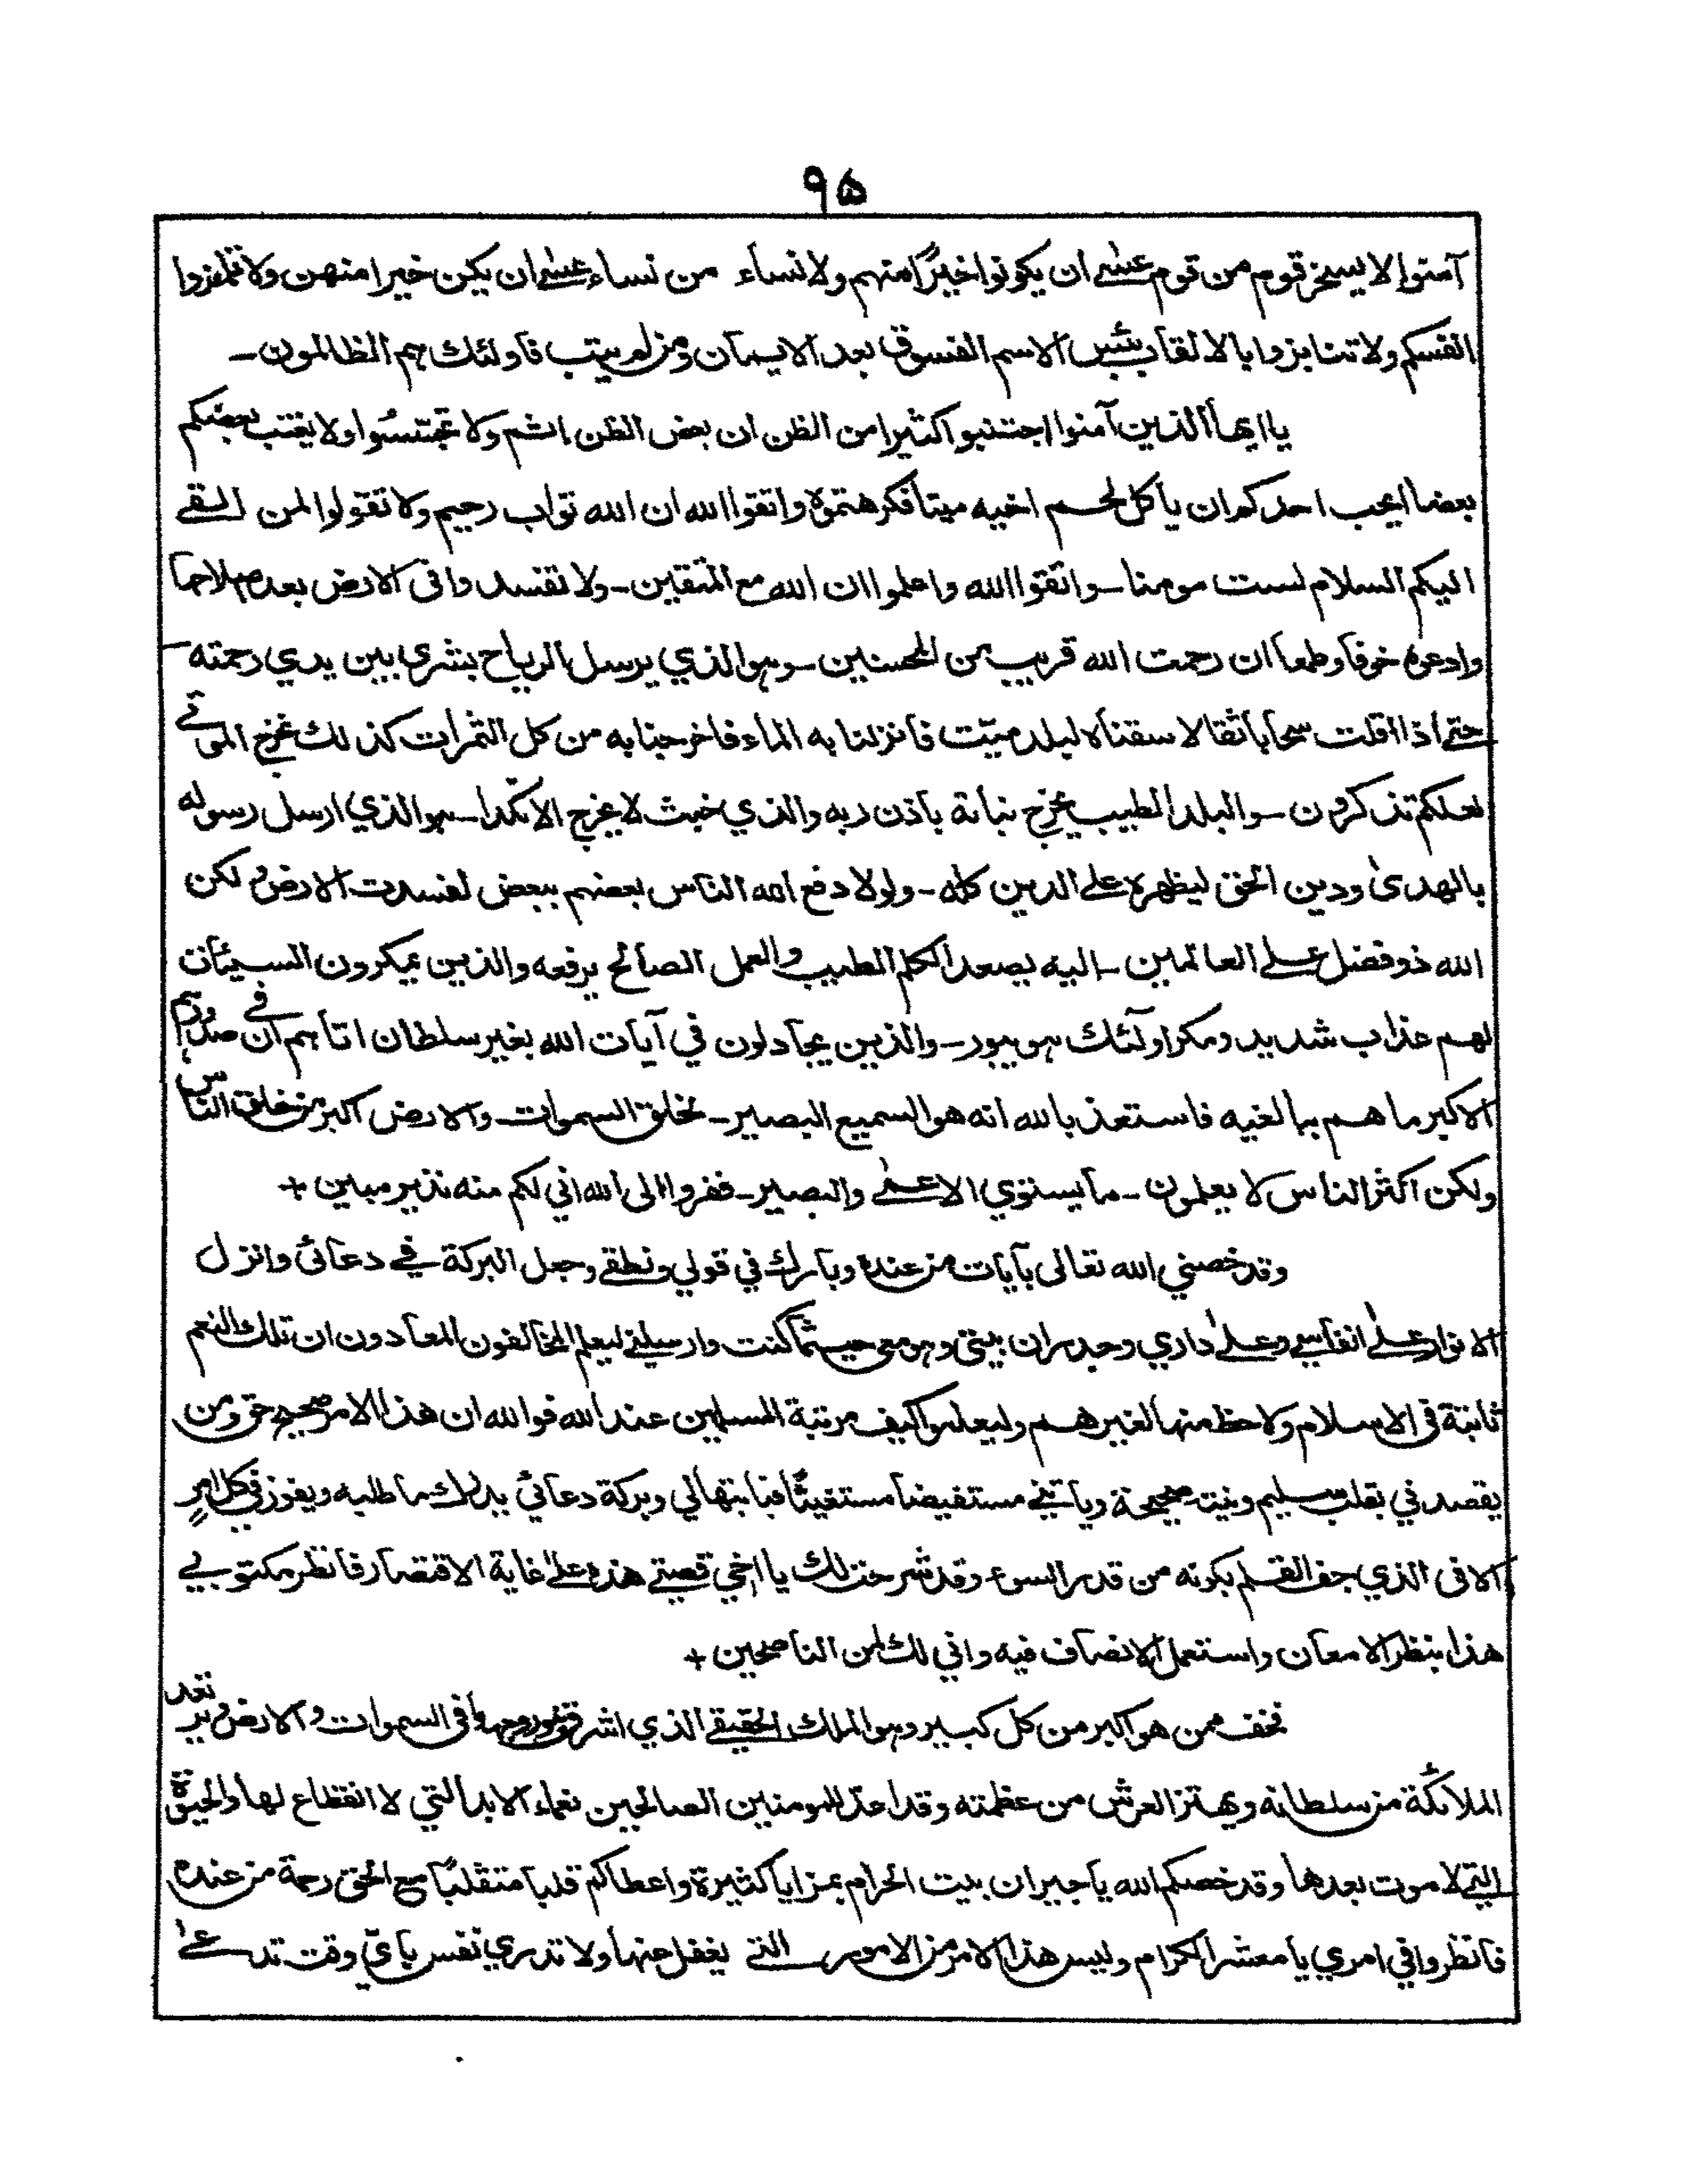 ۹۵
آمنوا لا يسخر قوم من قوم عسٰے ان يكونوا خيرًا منهم ولا نساء من نساء عسٰے ان يكن خيرا منهن ولا تلمزوا
انفسكم ولا تنابزوا بالالقاب بئس الاسم الفسوق بعد الايمان ومن لم يتب فاولئك هم الظالمون ــ
يا ايها الذين آمنوا اجتنبوا كثيرا من الظن ان بعض الظن اثم ولا تجسّسُوا ولا يغتب بعضكم
بعضا ايحب احدكم ان ياكل لحم اخيه ميتا فكرهتموه واتقوا الله ان الله تواب رحيم ولا تقولوا لمن القے
اليكم السلام لست مومنا ــ واتقوا الله واعلموا ان الله مع المتقين ــ ولا تفسدوا فى الارض بعد صلاحها
وادعوه خوفا وطمعا ان رحمت الله قريب من المحسنين ــ وهو الذي يرسل الرياح بشرى بين يدي رحمته ــ
حتے اذا اقلت سحابا ثقالا سقناه لبلد ميّت فانزلنا به الماء فاخرجنا به من كل الثمرات كذلك نخرج الموتے
لعلكم تذكرون ــ والبلد الطيب يخرج نباته باذن ربه والذي خبث لا يخرج الا نكدا ــ هو الذي ارسل رسوله
بالهدىٰ ودين الحق ليظهره علے الدين كله ــ ولولا دفع الله الناس بعضهم ببعض لفسدت الارض ولكن
الله ذو فضل علے العالمين ــ اليه يصعد الكلم الطيب والعمل الصالح يرفعه والذين يمكرون السيئات
لهم عذاب شديد ومكر اولٓئك هو يبور ــ والذين يجادلون في آيات الله بغير سلطان اتاهم ان فے صدورهم
الا كبر ما هم ببالغيه فاستعذ بالله انه هو السميع البصير ــ لخلق السموات والارض اكبر من خلق الناس
ولكن اكثر الناس لا يعلمون ــ ما يستوي الاعمٰے والبصير ــ ففروا الى الله اني لكم منه نذير مبين +
وقد خصني الله تعالى بآيات من عنده وبارك في قولي ونطقے وجعل البركة فے دعائى وانزل
الانوار علےٰ انفاسے وعلےٰ داري وجدران بيتى ومن معى حيثما كنت وارسلنے ليعلم المخالفون المعادون ان تلك النعم
ثابتة فى الاسلام ولا حظ منها لغيرهم وليعلموا كيف مرتبة المسلمين عند الله فوالله ان هذا الامر صحيح حق ومن
يقصدني بقلب سليم ونيت صحيحة وياتينے مستفيضا مستغيثًا فبابتهالي وبركة دعائي يدرك ما طلبه ويفوز في كل امرٍ
الا فى الذي جف القلم بكونه من قدر السوء وقد شرحت لك يا اخي قصتے هذه علےٰ غاية الاقتصار فانظر مكتوبي
هذا بنظر الامعان واستعمل الانصاف فيه واني لك لمن الناصحين +
فخف ممن هو اكبر من كل كبير وهو الملك الحقيقے الذي اشرق نور وجهه فى السموات والارض وترتعد
الملائكة من سلطانه ويهتز العرش من عظمته وقد اعدّ للمومنين الصالحين نعماء الابد التي لا انقطاع لها والحيوٰة
التے لا موت بعدها وقد خصكم الله يا جيران بيت الحرام بمزايا كثيرة واعطاكم قلبا متقلبًا مع الحق رحمة من عنده
فانظروا في امري يا معشر الكرام وليس هذا الامر من الامور التے يغفل عنها ولا تدري نفس باىّ وقت تدعٰے